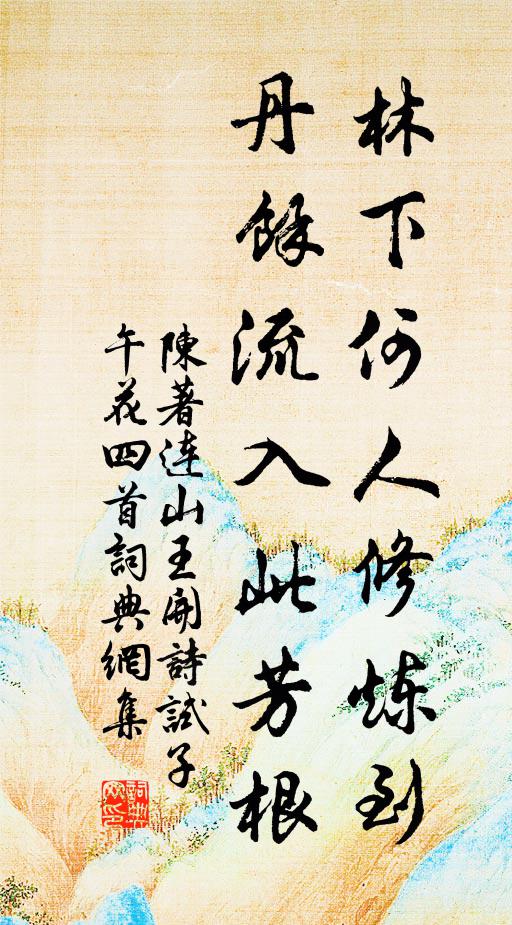 林下何人修炼到
丹馀流入此芳根
陳著连山王開詩試子
午花四首詞典網集
詞典网印